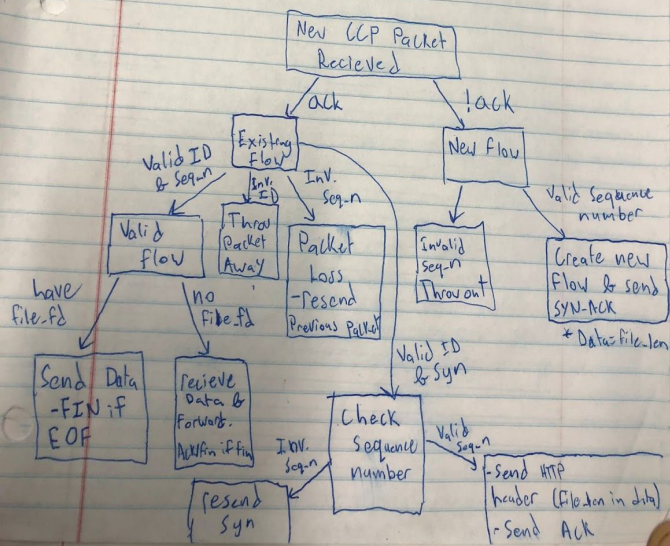 New CCP Packet
Recieved
ack
!ack
Existing
Flow
New flow
Valid ID
& Seq-n
Inv.
ID
Inv.
Seq-n
Valid Sequence
number
Valid
flow
Throw
Packet
Away
Packet
Loss
-resend
Previous Packet
Invalid
seq-n
Throw out
Create new
Flow & send
SYN-ACK
* Data=file_len
have
file_fd
no
File_fd
Valid ID
& Syn
Send Data
-FIN if
EOF
recieve
Data &
Forward.
Ack/fin if fin
Check
Sequence
number
Inv.
Seq-n
Valid
Seq-n
resend
Syn
-Send HTTP
header (file len in data)
-Send ACK